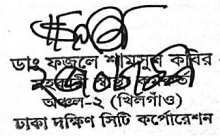 ডাঃ ফজলে শামসুল কবির
অঞ্চল-২ (খিলগাঁও)
ঢাকা দক্ষিণ সিটি কর্পোরেশন